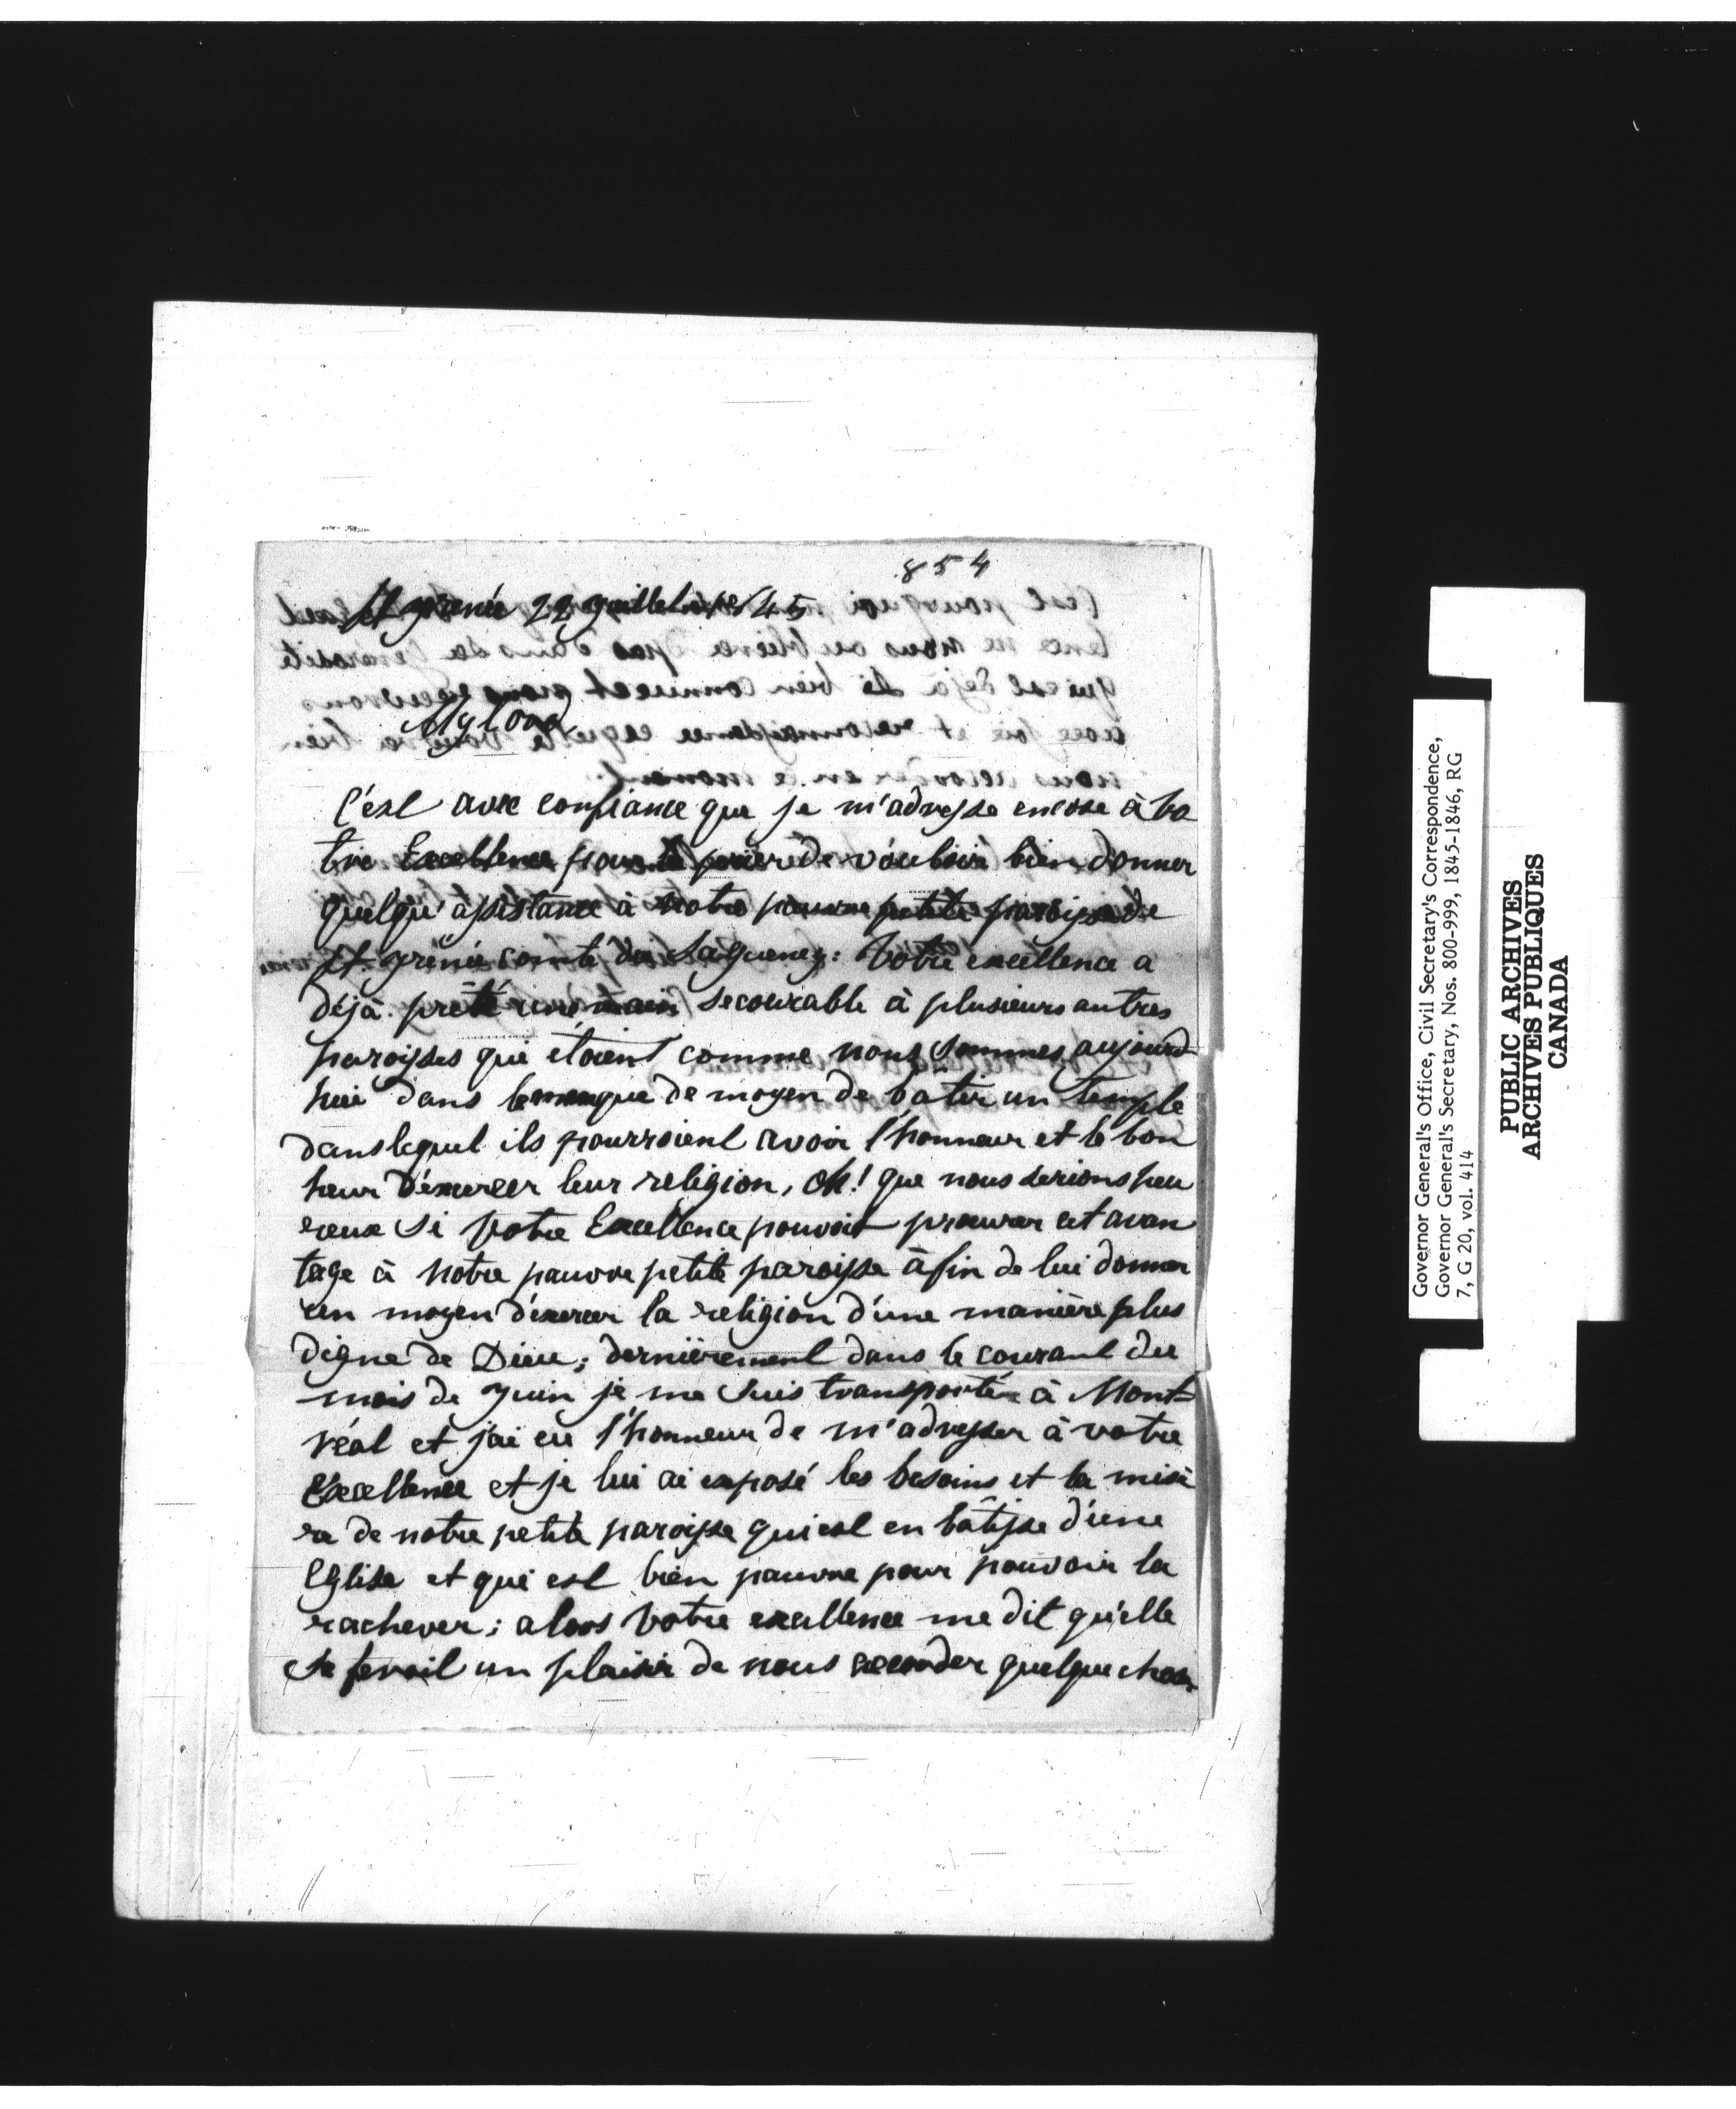 854
St Yrénée 22 Juillet 1845
My Lord
C'est avec confiance que je m'adresse encore à vo
tre Excellence pour la prier de vouloir bien donner
quelqu'àssistance à notre pauvre petite paroisse de
St. Yrénée comté du Saguenay: Votre excellence a
déjà prêté une main secourable à plusieurs autres
paroisses qui etoient comme nous sommes aujourd
hui dans le manque de moyen de bâtir un temple
dans lequel ils pourroient avoir l'honneur et le bon
heur d'éxercer leur religion, oh! que nous serions heu
reux si votre Excellence pouvoit procurer cet avan
tage à notre pauvre petite paroisse àfin de lui donner
un moyen d'éxercer la religion d'une manière plus
digne de Dieu; dernièrement dans le courant du
mois de Juin je me suis transporté à Mont
réal et j'ai eu l'honneur de m'adresser à votre
Excellence et je lui ai exposé les besoins et la misè
re de notre petite paroisse qui est en bâtisse d'une
Eglise et qui est bien pauvre pour pouvoir la
rachever; alors votre excellence me dit qu'elle
se feroit un plaisir de nous accorder quelque chose
Governor General's Office, Civil Secretary's Correspondence,
Governor General's Secretary, Nos. 800-999, 1845-1846, RG
7, G 20, vol. 414
PUBLIC ARCHIVES
ARCHIVES PUBLIQUES
CANADA